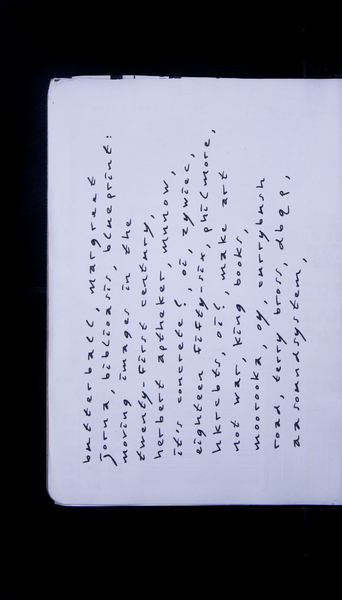 butterball, margreet
jorna, biblioasis, blueprint:
moving images in the
twenty-first century,
herbert aptheker, munow,
it's concrete!, oi, zywiec,
eighteen fifty-six, philmore,
hkrcbts, oi!, make art
not war, king books,
moorooka, oy, currybush
road, terry bross, dbqp,
aasoundsystem,